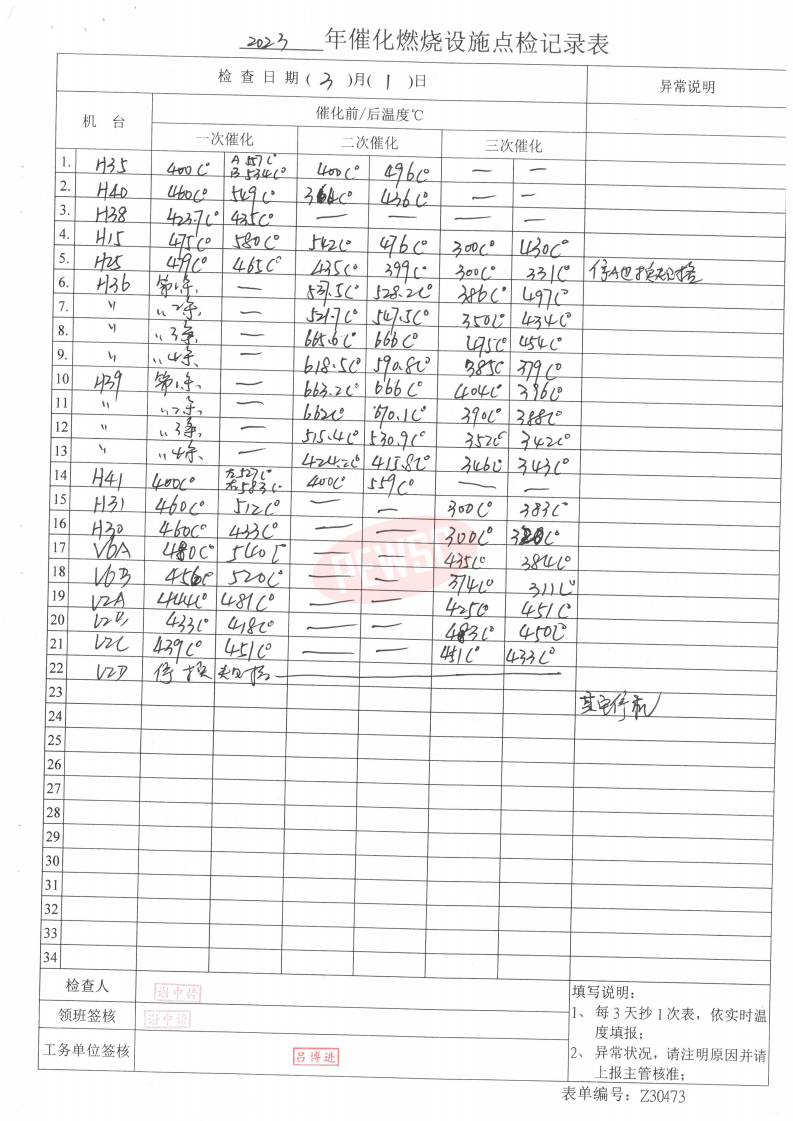 2023 年催化燃烧设施点检记录表
检查日期( 3 )月( 1 )日 异常说明
机 台 催化前/后温度℃
一次催化 二次催化 三次催化
1. H35 400C° A 557C° B 534C° 400C° 496C° — —
2. H40 460C° 549C° 436C° — —
3. H38 423.7C° 435C° — — — —
4. H15 475C° 580C° 542C° 476C° 300C° 430C°
5. H25 479C° 465C° 435C° 399C° 300C° 331C°
6. H36 第1条 — 537.5C° 528.2C° 386C° 497C°
7. 〃 〃2条 — 521.7C° 547.5C° 350C° 434C°
8. 〃 〃3条 — 665.6C° 666C° 495C° 454C°
9. 〃 〃4条 — 618.5C° 590.8C° 385C° 379C°
10 H39 第1条 — 663.2C° 666C° 404C° 396C°
11 〃 〃2条 — 662C° 670.1C° 390C° 388C°
12 〃 〃3条 — 515.4C° 530.9C° 352C° 342C°
13 〃 〃4条 — 424.2C° 415.8C° 346C° 343C°
14 H41 400C° 左527C° 右583C° 400C° 559C° — —
15 H31 460C° 512C° — — 300C° 383C°
16 H30 460C° 433C° — — 300C°
17 V6A 480C° 540C° — — 435C° 384C°
18 V6B 456C° 520C° — — 374C° 311C°
19 V2A 444C° 481C° — — 425C° 451C°
20 V2B 433C° 418C° — — 483C° 450C°
21 V2C 439C° 451C° — — 451C° 433C°
22 V2D 停 换
23
24 其它停机
25
26
27
28
29
30
31
32
33
34
PEWSC
检查人 谢中榕
领班签核 谢中榕
工务单位签核 吕博进
填写说明:
1、每3天抄1次表，依实时温
度填报;
2、异常状况，请注明原因并请
上报主管核准;
表单编号: Z30473